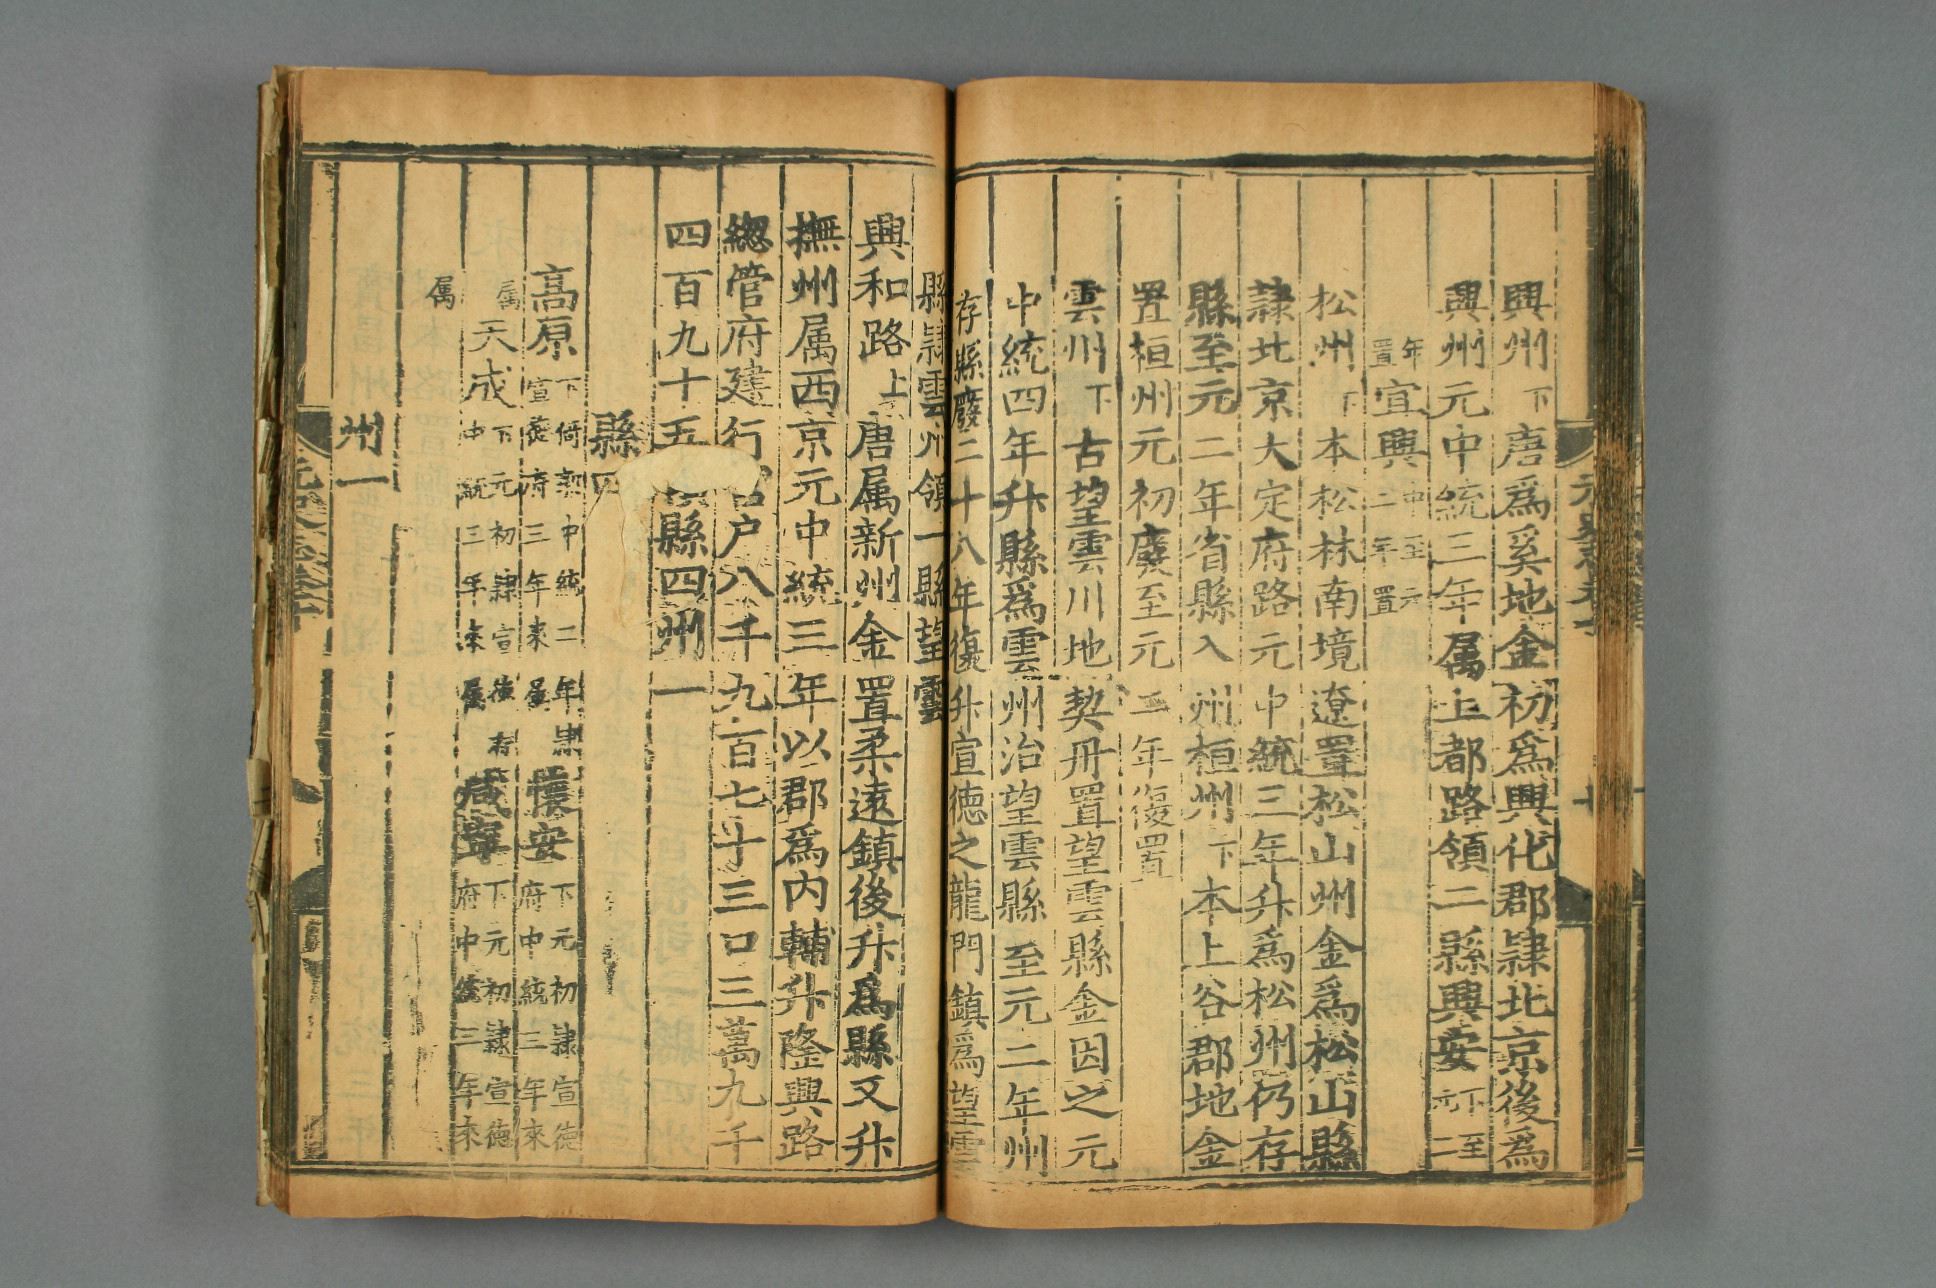 興州下唐爲奚地金初爲興化郡隷北京後爲
興州元中統三年属上都路領二縣興安下至元二
年置宜興中至元二年置
松州下本松林南境遼置松山州金爲松山縣
隷北京大定府路元中統三年升爲松州仍存
縣至元二年省縣入州桓州下本上谷郡地金
置桓州元初廢至元二年復置
雲州下古望雲川地契丹置望雲縣金因之元
中統四年升縣爲雲州治望雲縣至元二年州
存縣廢二十八年復升宣德之龍門鎮爲望雲
縣隷雲州領一縣望雲
興和路上唐属新州金置柔遠鎮後升爲縣又升
撫州属西京元中統三年以郡爲内輔升隆興路
緫管府建行宫户八千九百七十三口三萬九千
四百九十五縣四州一
縣四
高原下倚郭中統二年隷宣德府三年來属懷安下元初隷宣德府中統三年來
属天成下元初隷宣德府中統三年來属咸寧下元初隷宣德府中統三年來
属
州一